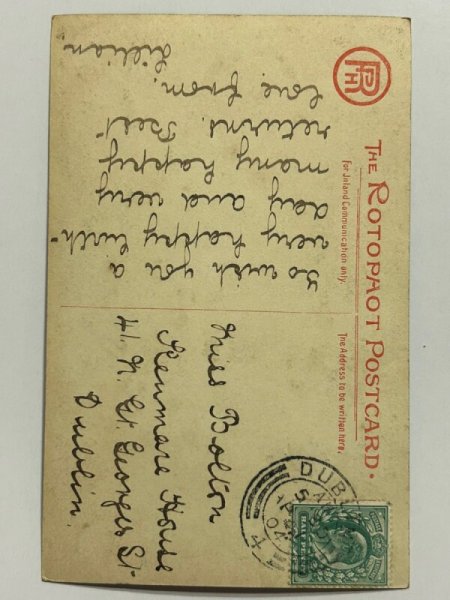 THE ROTOPHOT POSTCARD.
RPH
For Inland Communication only.
The Address to be written here.
To wish you a
very happy birth
day and very
many happy
returns. Best
love from,
Lillian
Miss Bolton
Kenmare House
41. N. Gt. Georges St
Dublin.
DUB
HALF PENNY